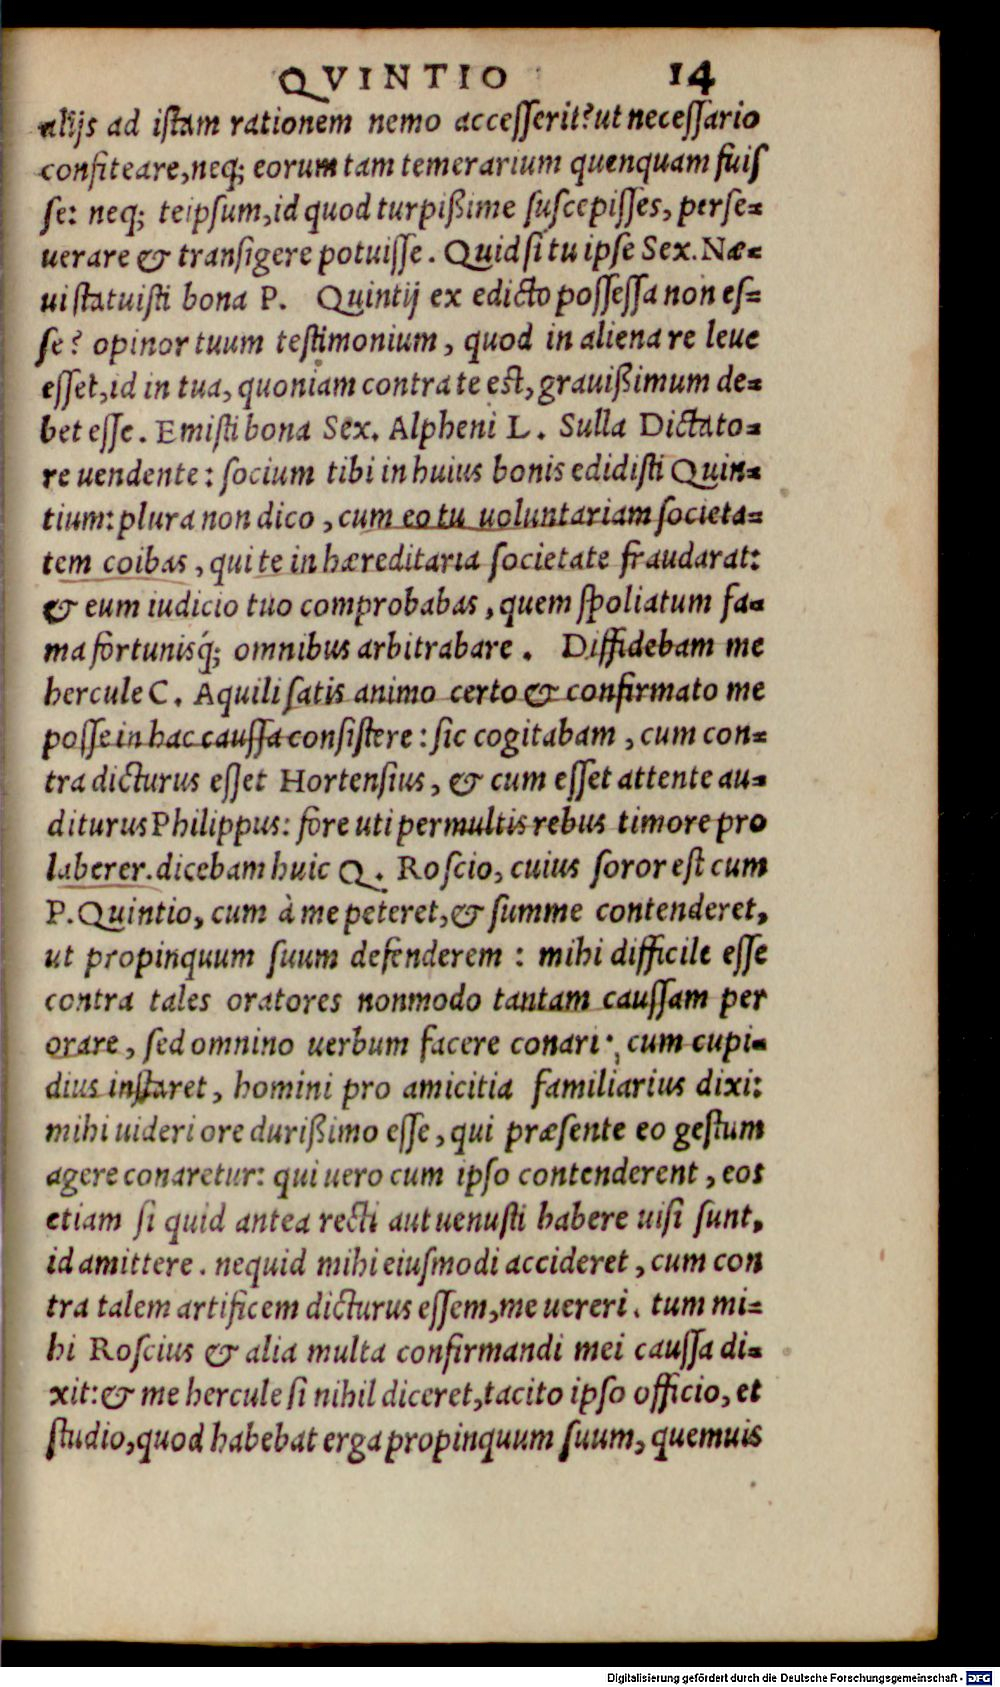 QVINTIO 14
alijs ad istam rationem nemo accesserit? ut necessario
confiteare, neq; eorum tam temerarium quenquam fuis
se: neq; teipsum, id quod turpißime suscepisses, perse-
uerare & transigere potuisse. Quid si tu ipse Sex. Næ-
ui statuisti bona P. Quintij ex edicto possessa non es-
se? opinor tuum testimonium, quod in aliena re leue
esset, id in tua, quoniam contra te est, grauißimum de-
bet esse. Emisti bona Sex. Alpheni L. Sulla Dictato-
re uendente: socium tibi in huius bonis edidisti Quin-
tium: plura non dico, cum eo tu uoluntariam societa-
tem coibas, qui te in hæreditaria societate fraudarat:
& eum iudicio tuo comprobabas, quem spoliatum fa-
ma fortunisq́; omnibus arbitrabare. Diffidebam me
hercule C. Aquili satis animo certo & confirmato me
posse in hac caussa consistere: sic cogitabam, cum con-
tra dicturus esset Hortensius, & cum esset attente au-
diturus Philippus: fore uti permultis rebus timore pro
laberer. dicebam huic Q. Roscio, cuius soror est cum
P. Quintio, cum à me peteret, & summe contenderet,
ut propinquum suum defenderem: mihi difficile esse
contra tales oratores nonmodo tantam caussam per
orare, sed omnino uerbum facere conari: cum cupi-
dius instaret, homini pro amicitia familiarius dixi:
mihi uideri ore durißimo esse, qui præsente eo gestum
agere conaretur: qui uero cum ipso contenderent, eos
etiam si quid antea recti aut uenusti habere uisi sunt,
id amittere. nequid mihi eiusmodi accideret, cum con
tra talem artificem dicturus essem, me uereri. tum mi-
hi Roscius & alia multa confirmandi mei caussa di-
xit: & me hercule si nihil diceret, tacito ipso officio, et
studio, quod habebat erga propinquum suum, quemuis
Digitalisierung gefördert durch die Deutsche Forschungsgemeinschaft - DFG